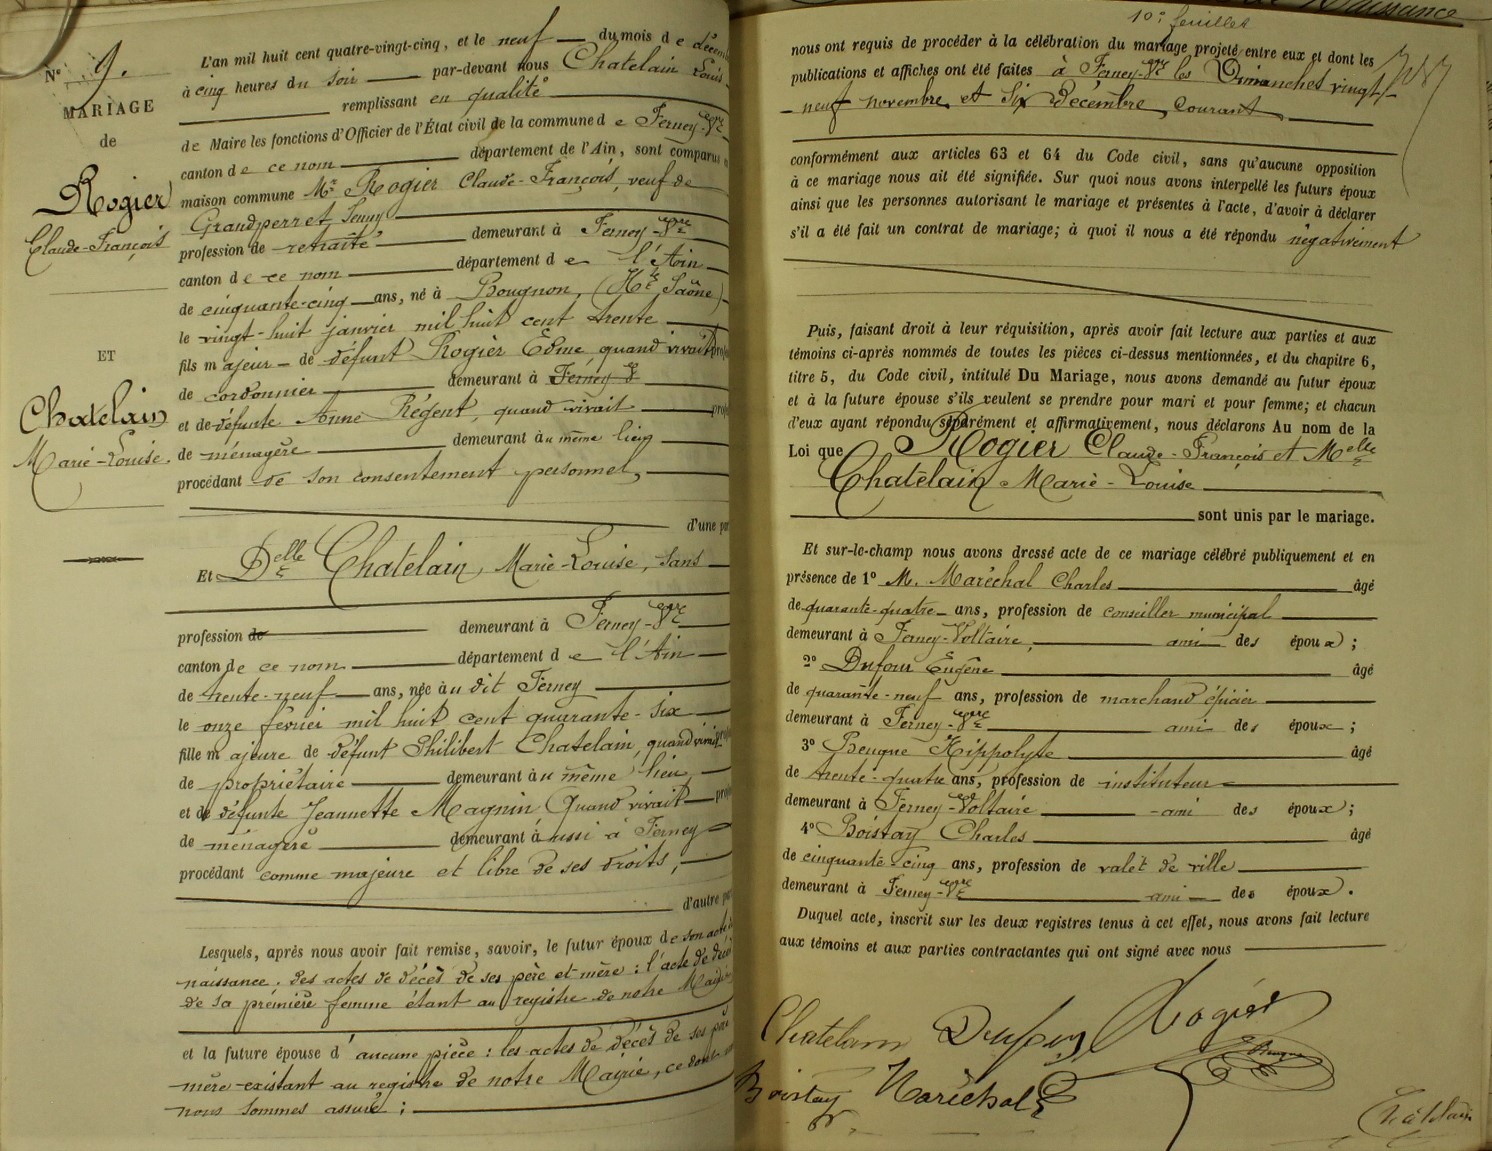 N° 9.
MARIAGE
de
Rogier
Claude-François
ET
Chatelain
Marie-Louise.
L'an mil huit cent quatre-vingt-cinq, et le neuf du mois d e décem
à cinq heures du soir par-devant nous Chatelain Louis
remplissant en qualité
de Maire les fonctions d'Officier de l'État civil de la commune d e Ferney-Vre
canton d e ce nom département de l'Ain, sont comparus
maison commune Mr Rogier Claude-François, veuf de
Grandperret Jenny
profession de retraité demeurant à Ferney-Vre
canton d e ce nom département d e l'Ain
de cinquante-cinq ans, né à Bougnon, (Hte Saône)
le vingt-huit janvier mil huit cent trente
fils majeur de défunt Rogier Edme, quand vivait
de cordonnier demeurant à Ferney V
et de défunte Anne Régent, quand vivait
de ménagère demeurant au même lieu
procédant de son consentement personnel,
d'une par
Et Delle Chatelain, Marie-Louise, sans
profession de demeurant à Ferney-Vre
canton de ce nom département d e l'Ain
de trente-neuf ans, née au dit Ferney
le onze février mil huit cent quarante-six
fille majeure de défunt Philibert Chatelain, quand vivait
de propriétaire demeurant au même lieu
et de défunte Jeannette Magnin Quand vivait
de ménagère demeurant aussi à Ferney
procédant comme majeure et libre de ses droits;
d'autre par
Lesquels, après nous avoir fait remise, savoir, le futur époux de son acte de
naissance, des actes de décès de ses père et mère: l'acte de décès
de sa première femme étant au registre de notre Mairie
et la future épouse d'aucune pièce: les actes de décès de ses père
mère existant au registre de notre Mairie, ce dont
nous sommes assuré;
10e feuillet
Naissance
nous ont requis de procéder à la célébration du mariage projeté entre eux et dont les
publications et affiches ont été faites à Ferney-Vre les Dimanches vingt-
neuf novembre et Six décembre courant
conformément aux articles 63 et 64 du Code civil, sans qu'aucune opposition
à ce mariage nous ait été signifiée. Sur quoi nous avons interpellé les futurs époux
ainsi que les personnes autorisant le mariage et présentes à l'acte, d'avoir à déclarer
s'il a été fait un contrat de mariage; à quoi il nous a été répondu négativement
Puis, faisant droit à leur réquisition, après avoir fait lecture aux parties et aux
témoins ci-après nommés de toutes les pièces ci-dessus mentionnées, et du chapitre 6,
titre 5, du Code civil, intitulé Du Mariage, nous avons demandé au futur époux
et à la future épouse s'ils veulent se prendre pour mari et pour femme; et chacun
d'eux ayant répondu séparément et affirmativement, nous déclarons Au nom de la
Loi que Rogier Claude-François et Melle
Chatelain Marie-Louise
sont unis par le mariage.
Et sur-le-champ nous avons dressé acte de ce mariage célébré publiquement et en
présence de 1° M. Maréchal Charles âgé
de quarante-quatre ans, profession de conseiller municipal
demeurant à Ferney-Voltaire, ami des époux;
2° Dufour Eugène âgé
de quarante-neuf ans, profession de marchand épicier
demeurant à Ferney-Vre ami des époux;
3° Beugne Hippolyte âgé
de trente-quatre ans, profession de instituteur
demeurant à Ferney-Voltaire ami des époux;
4° Boistay Charles âgé
de cinquante cinq ans, profession de valet de ville
demeurant à Ferney-Vre ami des époux.
Duquel acte, inscrit sur les deux registres tenus à cet effet, nous avons fait lecture
aux témoins et aux parties contractantes qui ont signé avec nous
Chatelain Dufour Rogier
Boistay Maréchal Beugne
Chatelain